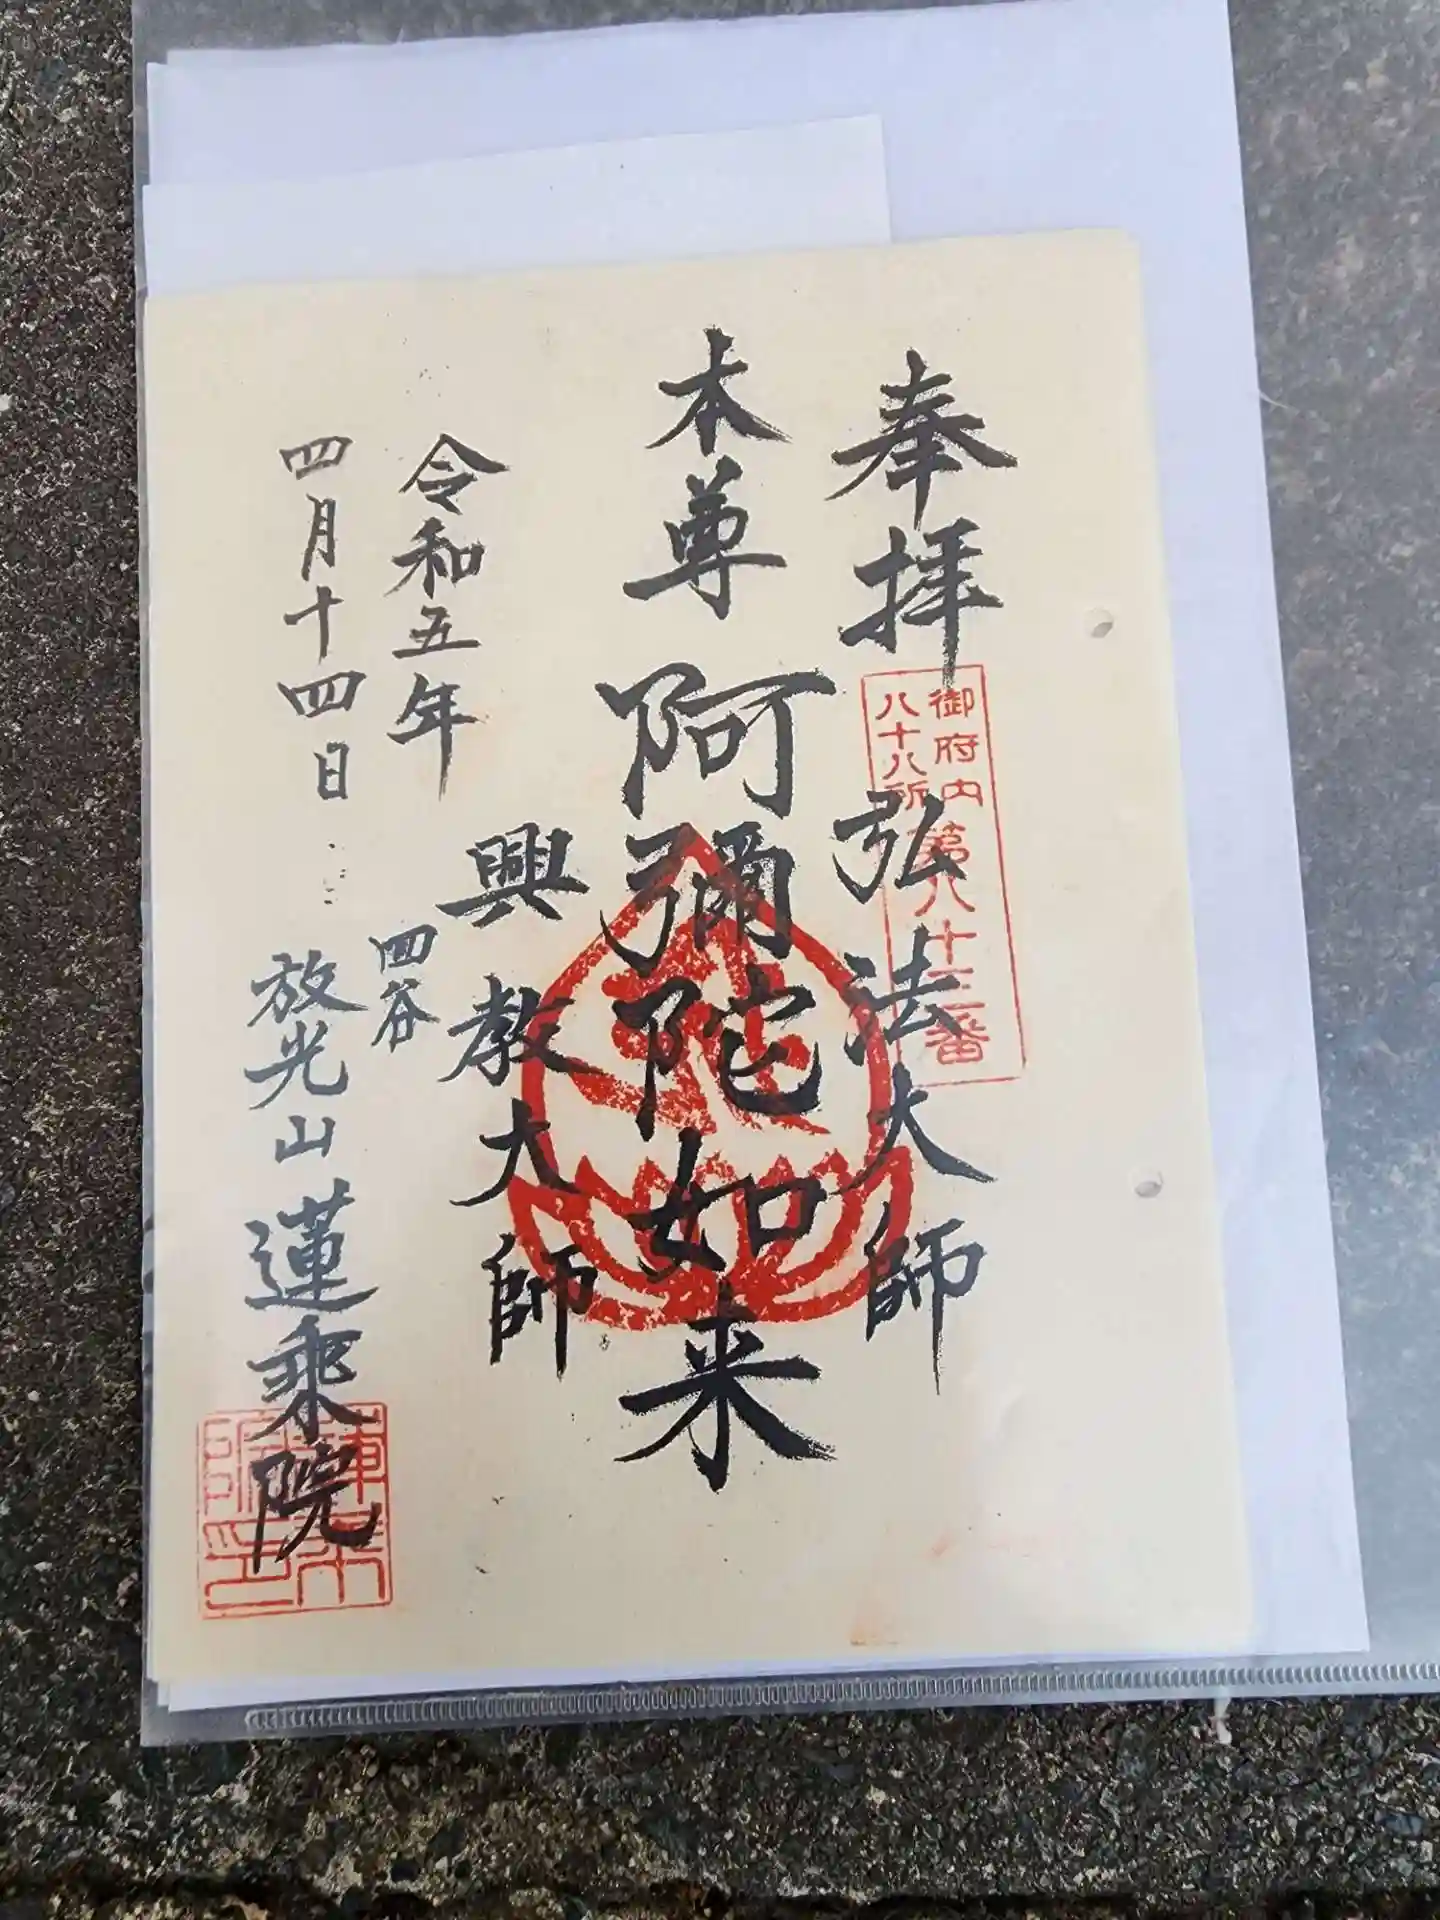 奉拝
御府内
八十八所
第八十三番
弘法大師
本尊 阿彌陀如来
興教大師
令和五年
四月十四日
四谷
放光山 蓮乗院
蓮乗
院印